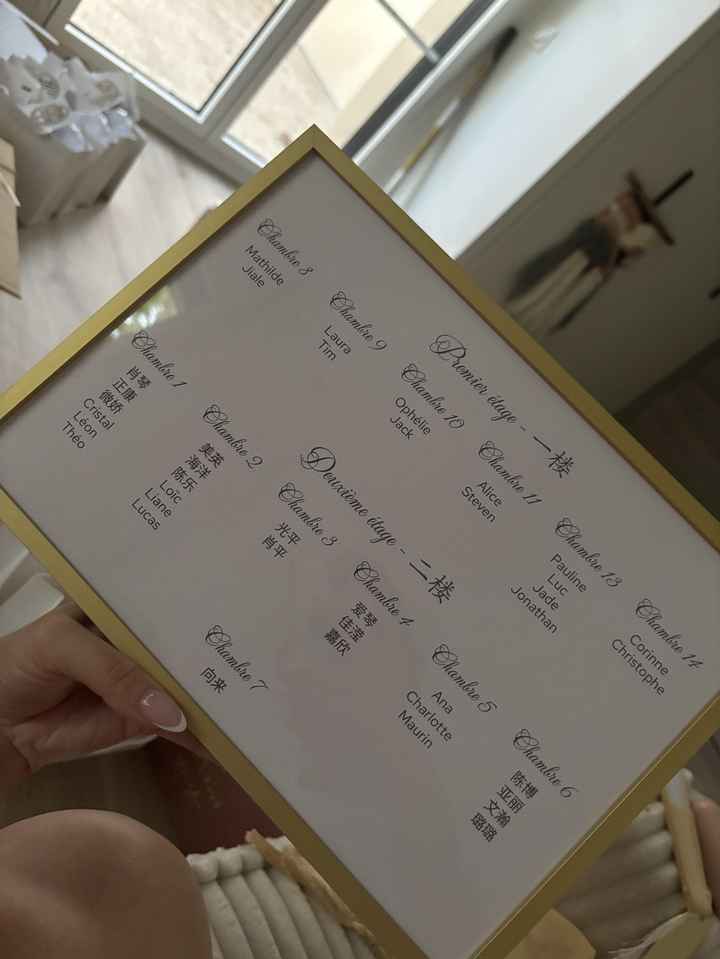 Premier étage - 一楼
Chambre 8
Mathilde
Jiale
Chambre 9
Laura
Tim
Chambre 10
Ophélie
Jack
Chambre 11
Alice
Steven
Chambre 13
Pauline
Luc
Jade
Jonathan
Chambre 14
Corinne
Christophe
Deuxième étage - 二楼
Chambre 1
肖琴
正康
微娇
Cristal
Léon
Théo
Chambre 2
美英
海洋
陈乐
Loïc
Liane
Lucas
Chambre 3
光平
肖平
Chambre 4
爱琴
佳滢
嘉欣
Chambre 5
Ana
Charlotte
Maurin
Chambre 6
陈博
亚丽
文瀚
璐璐
Chambre 7
向来